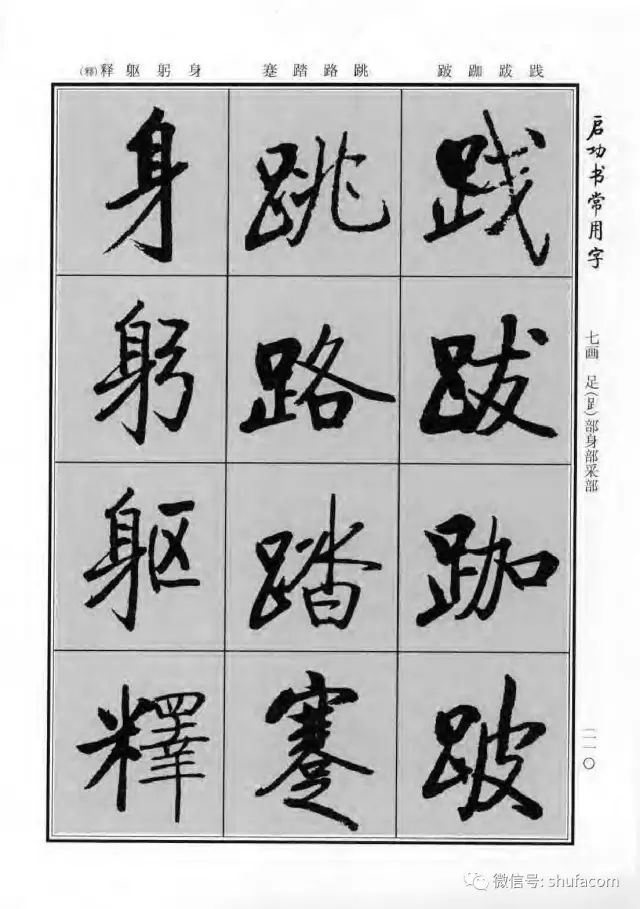 践跋跏跛
跳路踏蹇
身躬躯释(釋)
启功书常用字
七画 足(⻊)部身部釆部
二一〇
践
跋
跏
跛
跳
路
踏
蹇
身
躬
躯
釋
微信号: shufacom